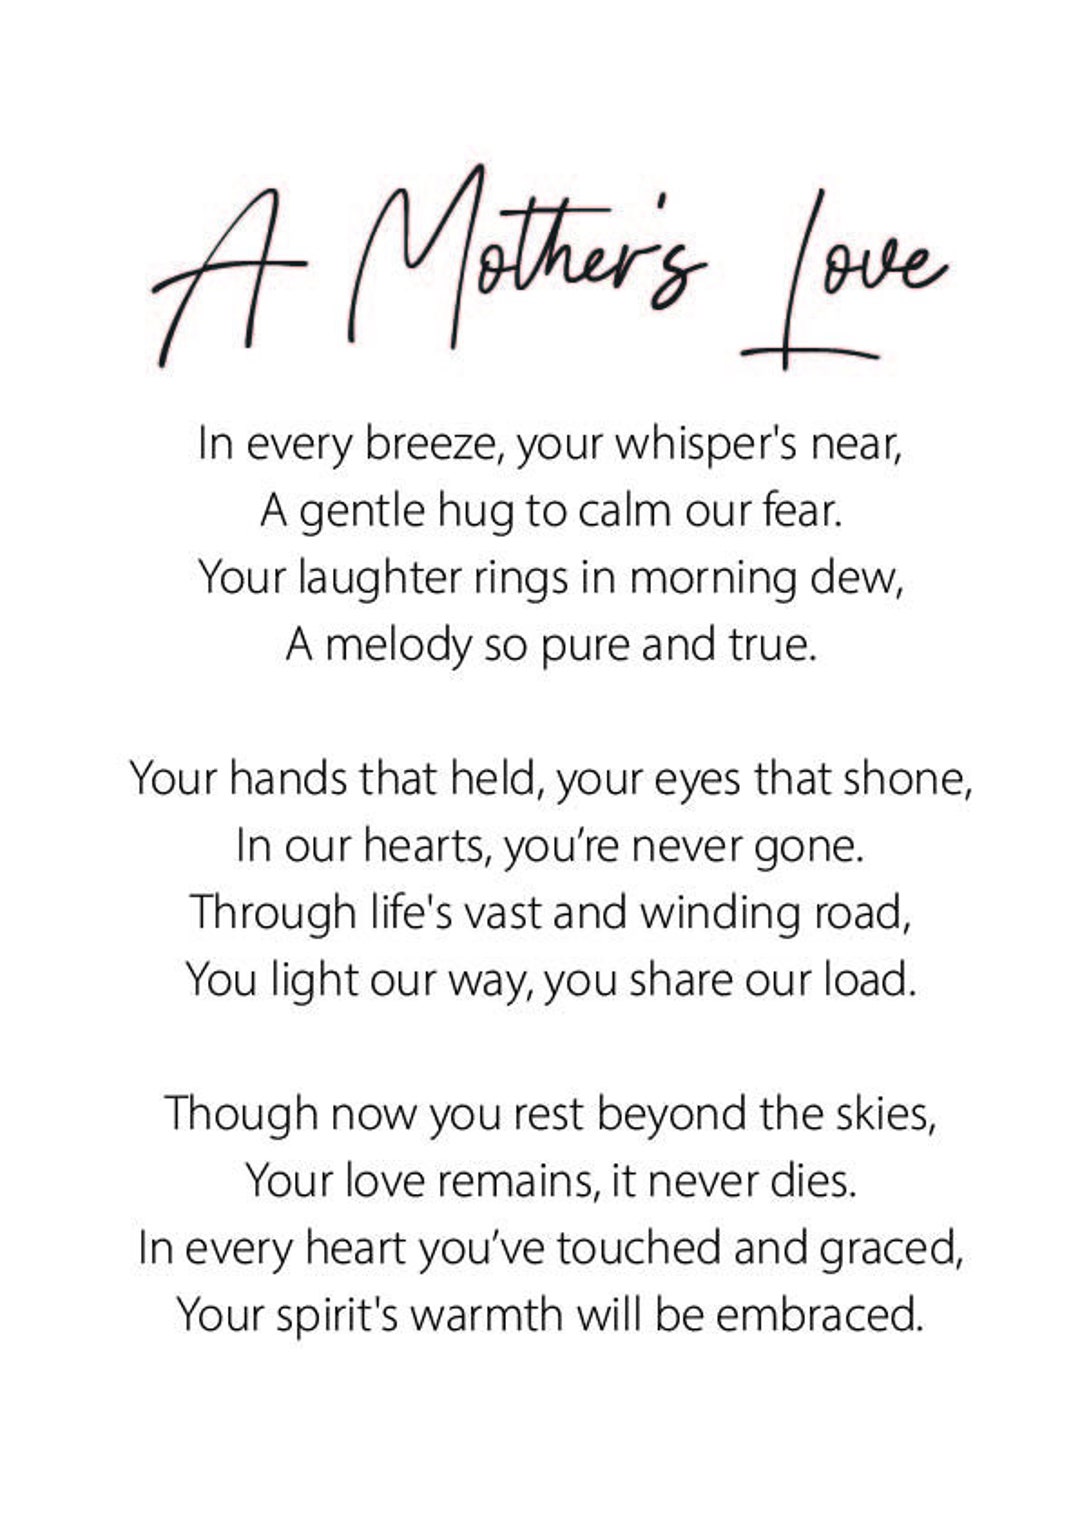 A Mother's Love
In every breeze, your whisper's near,
A gentle hug to calm our fear.
Your laughter rings in morning dew,
A melody so pure and true.
Your hands that held, your eyes that shone,
In our hearts, you’re never gone.
Through life's vast and winding road,
You light our way, you share our load.
Though now you rest beyond the skies,
Your love remains, it never dies.
In every heart you’ve touched and graced,
Your spirit's warmth will be embraced.